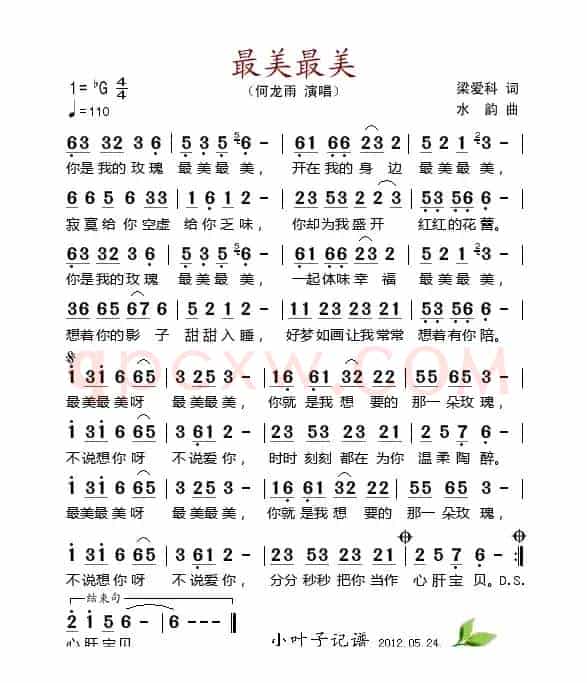 最美最美
1=♭G 4/4
（何龙雨 演唱）
梁爱科 词
♩=110
水 韵 曲
63 32 3 6 | 5 3 5 5 6 - | 61 66 23 2 | 5 2 1 2 3 - |
你是我的玫瑰 最美最美， 开在我的身 边 最美最美，
6 6 5 6 33 | 6 1 2 - | 23 53 2 2 3 | 53 56 6 - |
寂寞给你空虚 给你乏味， 你却为我盛开 红红的花蕾。
63 32 3 6 | 5 3 5 5 6 - | 61 66 23 2 | 5 2 1 2 3 - |
你是我的玫瑰 最美最美， 一起体味幸 福 最美最美，
36 65 67 6 | 5 2 1 2 - | 11 23 23 21 | 53 56 6 - |
想着你的影 子 甜甜入睡， 好梦如画让我常常 想着有你陪。
qpcxw.com
i 3i 6 65 | 3 25 3 - | 16 61 32 2 | 55 65 3 - |
最美最美呀 最美最美， 你就 是我 想 要的 那一 朵玫瑰，
i 3i 6 65 | 3 61 2 - | 23 53 23 21 | 2 5 7 6 - |
不说想你呀 不说爱你， 时时 刻刻 都在 为你 温柔陶醉。
i 3i 6 65 | 3 25 3 - | 16 61 32 22 | 55 65 3 - |
最美最美呀 最美最美， 你就 是我 想 要的 那一 朵玫瑰，
i 3i 6 65 | 3 61 2 - | 23 53 23 21 | 2 5 7 6 - :|
不说想你呀 不说爱你， 分分 秒秒 把你 当作 心肝宝贝。D.S.
结束句
2 i 5 6 - | 6 - - - ‖
心肝宝贝
小叶子记谱 2012.05.24.